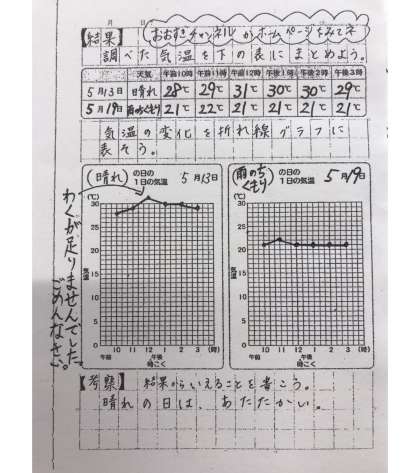 月 日
おおすきチャンネルかホームページをみてネ
【結果】
調べた気温を下の表にまとめよう。
天気 午前10時 午前11時 午後12時 午後1時 午後2時 午後3時
5月13日 晴れ 28℃ 29℃ 31℃ 30℃ 30℃ 29℃
5月19日 雨のちくもり 21℃ 22℃ 21℃ 21℃ 21℃ 21℃
気温の変化を折れ線グラフに
表そう。
(晴れ)の日の1日の気温 5月13日
(℃)
30
25
20
15
10
5
0
気温
10 11 12 1 2 3 (時)
午前 午後
時こく
(雨のちくもり)の日の1日の気温 5月19日
(℃)
30
25
20
15
10
5
0
気温
10 11 12 1 2 3 (時)
午前 午後
時こく
わくが足りませんでした。
ごめんなさい。
【考察】 結果からいえることを書こう。
晴れの日は、あたたかい。